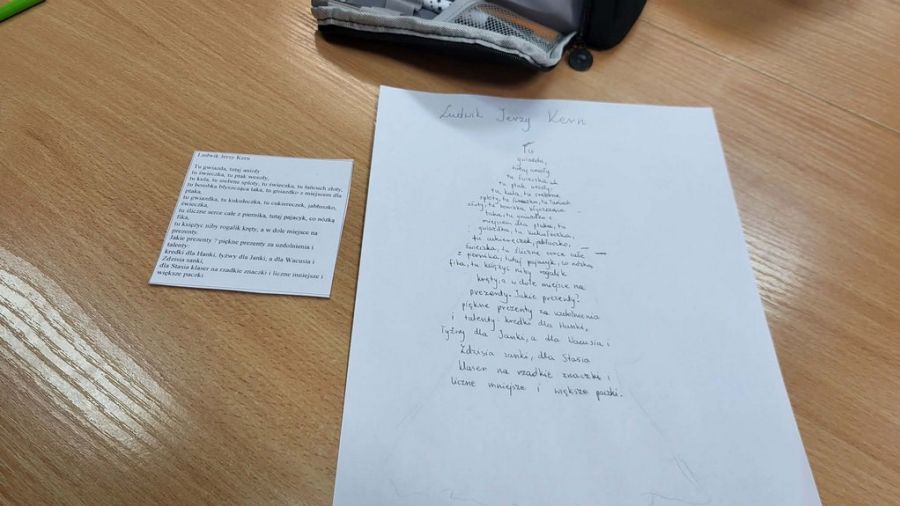 Ludwik Jerzy Kern
Tu gwiazda, tutaj anioły
tu świeczka, tu ptak wesoły,
tu kula, tu srebrne sploty, tu świeczka, tu łańcuch złoty,
tu bombka błyszcząca taka, tu gniazdko z miejscem dla
ptaka,
tu gwiazdka, tu kukułeczka, tu cukiereczek, jabłuszko,
świeczka,
tu śliczne serce całe z piernika, tutaj pajacyk, co nóżką
fika,
tu księżyc niby rogalik kręty, a w dole miejsce na
prezenty.
Jakie prezenty ? piękne prezenty za uzdolnienia i
talenty:
kredki dla Hanki, łyżwy dla Janki, a dla Wacusia i
Zdzisia sanki,
dla Stasia klaser na rzadkie znaczki i liczne mniejsze i
większe paczki
Ludwik Jerzy Kern
Tu
gwiazda,
tutaj anioły
tu świeczka,
tu ptak wesoły
tu kula, tu srebrne
sploty, tu świeczka, tu łańcuch
złoty, tu bombka, błyszcząca
taka, tu gniazdko z
miejscem dla ptaka, tu
gwiazdka, tu kukułeczka,
tu cukiereczek, jabłuszko,
świeczka, tu śliczne serce całe
z piernika, tutaj pajacyk, co nóżką
fika, tu księżyc niby rogalik
kręty, a w dole miejsce na
prezenty. Jakie prezenty?
piękne prezenty za uzdolnienia
i talenty: kredki dla Hanki,
łyżwy dla Janki, a dla Wacusia i
Zdzisia sanki, dla Stasia
klaser na rzadkie znaczki i
liczne mniejsze i większe paczki.